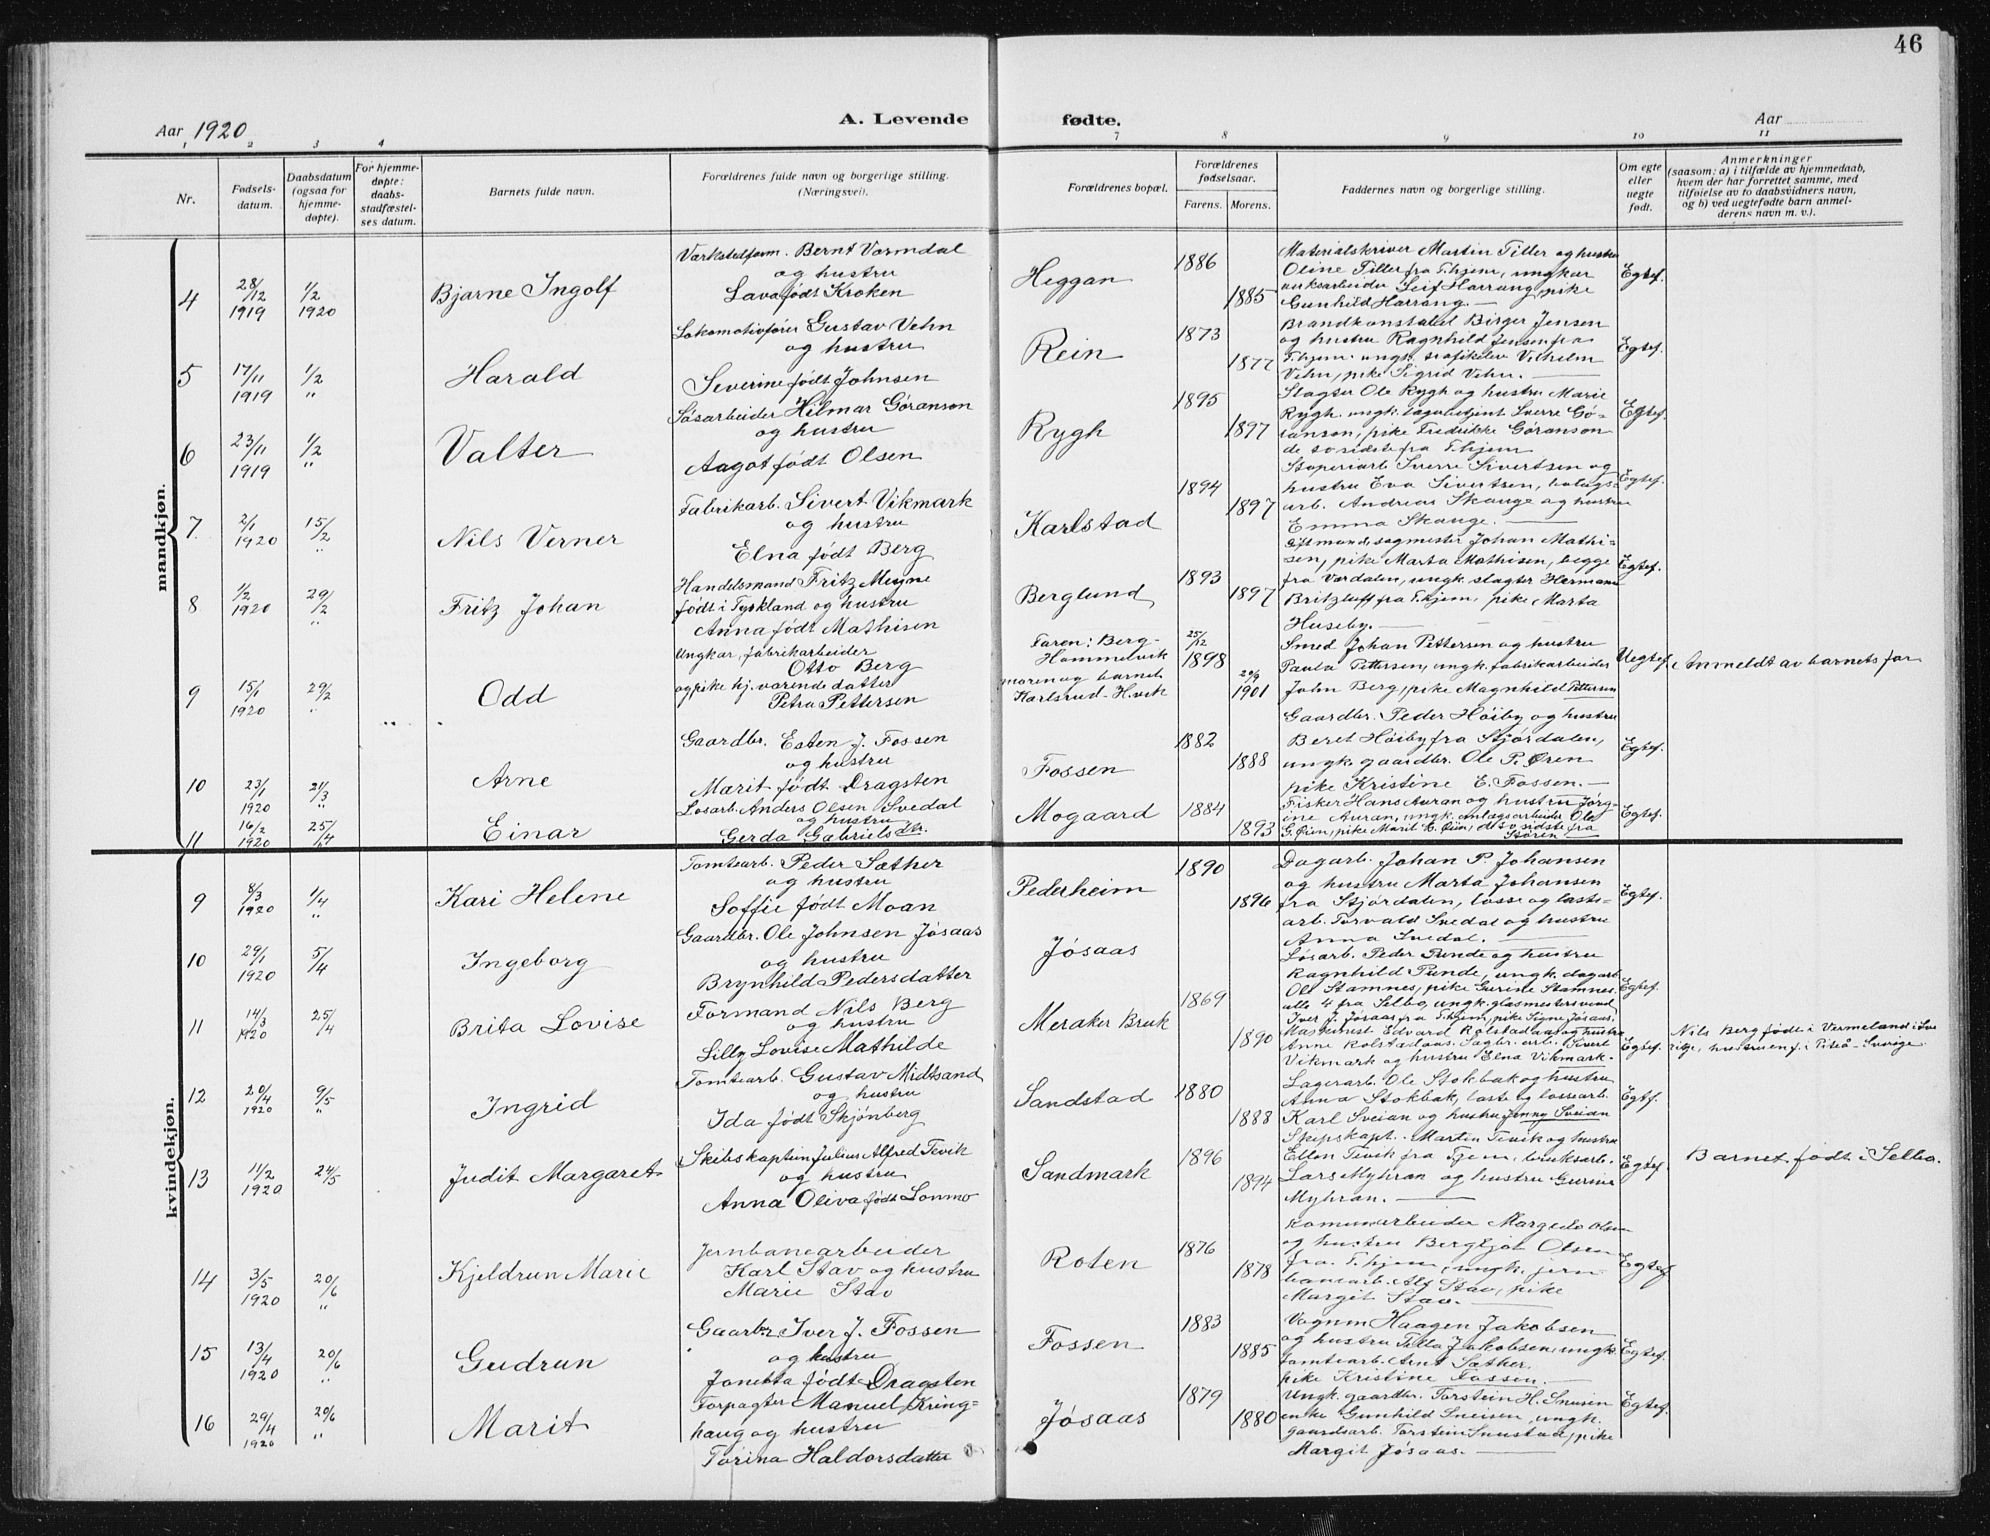 46
Aar 1920
A. Levende
fødte.
Aar
1 2 3 4 7 8 9 10 11
Nr.
Fødsels-
datum.
Daabsdatum
(ogsaa for
hjemme-
døpte).
For hjemme-
døpte:
daabs-
stadfæstel-
ses datum.
Barnets fulde navn.
Forældrenes fulde navn og borgerlige stilling.
(Næringsvei).
Forældrenes bopæl.
Forældrenes
fødselsaar.
Farens. Morens.
Faddernes navn og borgerlige stilling.
Om egte
eller
uegte
født.
Anmerkninger
(saasom: a) i tilfælde av hjemmedaab,
hvem der har forrettet samme, med
tilføielse av to daabsvidners navn,
og b) ved uegtefødte barn anmel-
derens navn m. v.).
mandkjøn.
4
28/12
1919
1/2
1920
Bjarne Ingolf
Værkstedform. Bernt Værmdal
og hustru
Lava født Kroken
Heggan
1886
1885
Materialskriver Martin Tiller og hustru
Oline Tiller fra Thjem, ungkar
verksarbeider Leif Harrang, pike
Gunhild Harrang.
Egtef.
5
17/11
1919
1/2
"
Harald
Lokomotivfører Gustav Vehn
og hustru
Severine født Johnsen
Rein
1873
1877
Brandkonstabel Birger Jensen
og hustru Ragnhild Jensen fra
Thjem. ungk. Vilhelm
Vehn, pike Sigrid Vehn.
Egtef.
6
23/11
1919
1/2
"
Valter
Løsarbeider Hilmar Göranson
og hustru
Aagot født Olsen
Rygh
1895
1897
Slagter Ole Rygh og hustru Marie
Rygh. ungk. Sverre Gö-
ranson, pike Fredrikke Göranson
de to sidste fra Thjem
Egtef.
7
2/1
1920
15/2
"
Nils Verner
Fabrikarb. Sivert Vikmark
og hustru
Elna født Berg
Karlstad
1894
1897
Støperiarb Sverre Sivertsen og
hustru Eva Sivertsen, bolags-
arb. Andreas Skauge og hustru
Emma Skauge.
Egtef.
8
1/2
1920
29/2
"
Fritz Johan
Handelsmand Fritz Meyne
født i Tyskland og hustru
Anna født Mathisen
Berglund
1893
1897
Giftmand, sagmester Johan Mathi-
sen, pike Marta Mathisen, begge
fra Værdalen, ungk. slagter Hermann
Britzluff fra Thjem, pike Marta
Huseby.
Egtef.
9
15/1
1920
29/2
"
Odd
Ungkar, fabrikarbeider
Otto Berg
og pike hj. værende datter
Petra Pettersen
Faren: Berg-
Hommelvik
moren og barnet
Karlsrud-H.vik
25/12
1898
20/9
1901
Smed Johan Pettersen og hustru
Paula Pettersen, ungk. fabrikarbeider
John Berg, pike Magnhild Pettersen
Uegtef.
Anmeldt av barnets far
10
23/1
1920
21/3
"
Arne
Gaardbr. Esten J. Fossen
og hustru
Marit født Dragsten
Fossen
1882
1888
Gaardbr. Peder Höiby og hustru
Beret Höiby fra Stjørdalen,
ungk. gaardbr. Ole P. Øren
pike Kristine E. Fossen.
Egtef.
11
16/2
1920
25/4
"
Einar
Løsarb. Anders Olsen Svedal
og hustru
Gerda Gabrielsdtr.
Mogaard
1884
1893
Fisker Hans Auran og hustru Jørg-
ine Auran, ungk. anlagsarbeider Ole
G. Øien, pike Marit E. Øien, de to sidste fra
Støren
Egtef.
kvindekjøn.
9
8/3
1920
1/4
"
Kari Helene
Tomtearb. Peder Sæther
og hustru
Soffie født Moan
Pederheim
1890
1896
Dagarb. Johan P. Johansen
og hustru Marta Johansen
fra Stjørdalen, losse og laste-
arb. Torvald Svedal og hustru
Anna Svedal.
Egtef.
10
29/1
1920
5/4
Ingeborg
Gaardbr. Ole Johnsen Jøsaas
og hustru
Brynhild Pedersdatter
Jøsaas
Løsarb. Peder Punde og hustru
Ragnhild Punde, ungk. dagarb.
Ole Stamnes, pike Gurine Stamnes
alle 4 fra Selbo, ungk. glasmestersvend
Iver J. Jøsaas fra Thjem, pike Signe Jøsaas.
Egtef.
11
14/3
1920
25/4
Brita Lovise
Formand Nils Berg
og hustru
Lilly Lovise Mathilde
Meraker Bruk
1869
1890
Maskinist. Edvard Rolstadaas og hustru
Anne Rolstadaas. Sagbr. arb. Sivert
Vikmark og hustru Elna Vikmark.
Egtef.
Nils Berg født i Vermeland i Sve
rige, hustruen f. i Piteå-Sverige.
12
20/4
1920
9/5
"
Ingrid
Tomtearb. Gustav Midtsand
og hustru
Ida født Skjønberg
Sandstad
1880
1888
Lagerarb. Ole Stokbak og hustru
Anna Stokbak, laste og lossearb.
Karl Sveian og hustru Jenny Sveian
Egtf.
13
11/2
1920
24/5
Judit Margaret
Skibskaptein Julius Alfred Tevik
og hustru
Anna Oliva født Lonmo
Sandmark
1896
1894
Skipskapt. Martin Tevik og hustru
Ellen Tevik fra Tjem, bruksarb.
Lars Myhran og hustru Gurine
Myhran.
Egtef.
Barnet født i Selbo.
14
3/5
1920
20/6
"
Kjeldrun Marie
Jernbanearbeider
Karl Stav og hustru
Marie Stav
Roten
1876
1878
Komunearbeider Margido Olsen
og hustru Bergljot Olsen
fra Thjem, ungk. jern
banearb. Alf Stav, pike
Margit Stav.
Egtef
15
13/4
1920
20/6
"
Gudrun
Gaarbr Iver J. Fossen
og hustru
Jonetta født Dragsten
Fossen
1883
1885
Vognm Haagen Jakobsen
og hustru Tilla Jakobsen, ungk.
tomtearb. Arnt Sæther,
pike Kristine Fossen.
Egtef.
16
29/4
1920
20/6
"
Marit
Forpagter Manuel Kring-
haug og hustru
Torina Haldorsdatter
Jøsaas
1879
1880
Ungk. gaardbr. Torstein H. Snusen
enke Gunhild Sneisen, ungk.
gaardsarb. Torstein Snustad, pike
Margit Jøsaas.
Egtef.